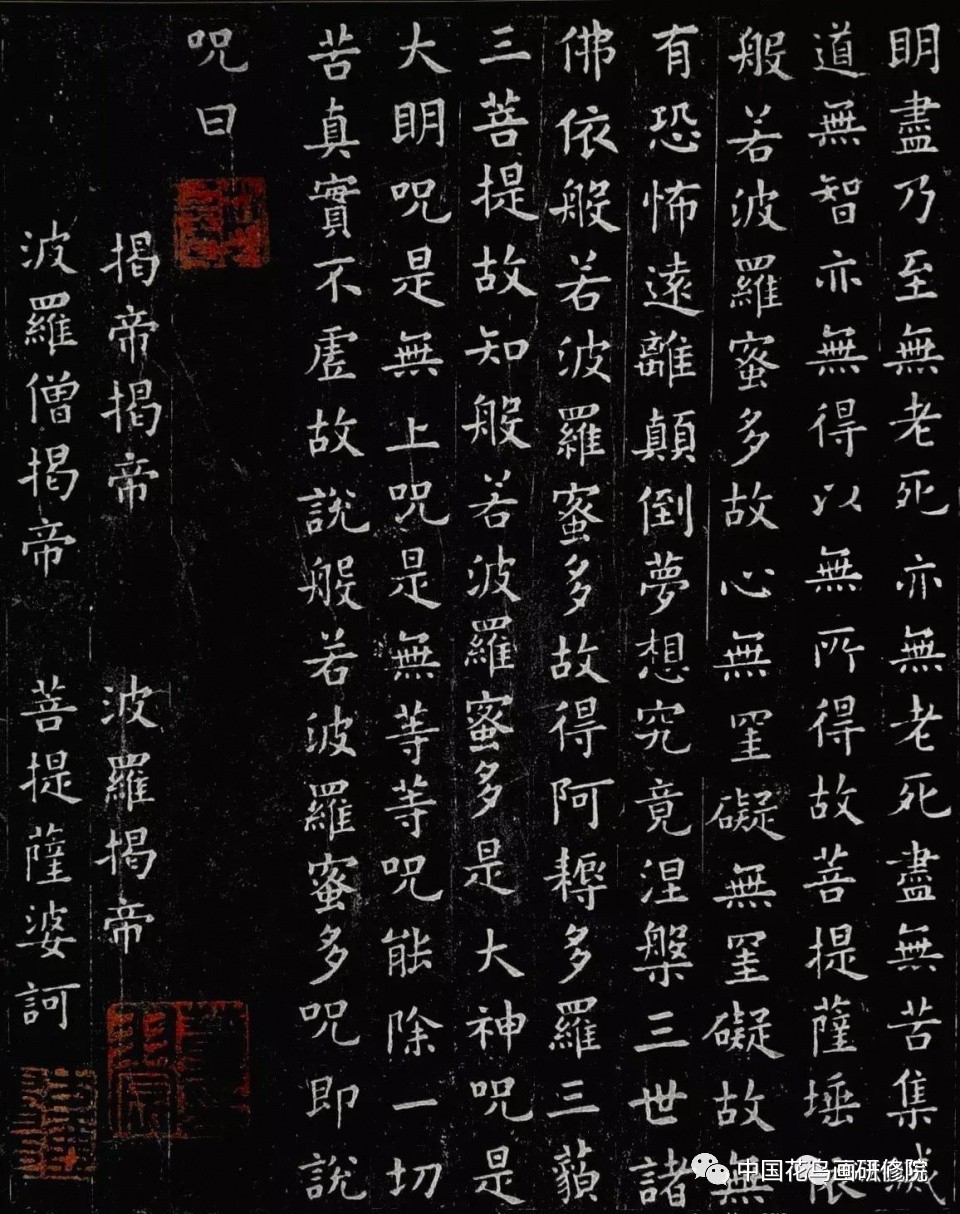 明盡乃至無老死亦無老死盡無苦集滅
道無智亦無得以無所得故菩提薩埵依
般若波羅蜜多故心無罣礙無罣礙故無
有恐怖遠離顛倒夢想究竟涅槃三世諸
佛依般若波羅蜜多故得阿耨多羅三藐
三菩提故知般若波羅蜜多是大神呪是
大明呪是無上呪是無等等呪能除一切
苦真實不虛故說般若波羅蜜多呪即說
呪曰
揭帝揭帝 波羅揭帝
波羅僧揭帝 菩提薩婆訶
中国花鸟画研修院